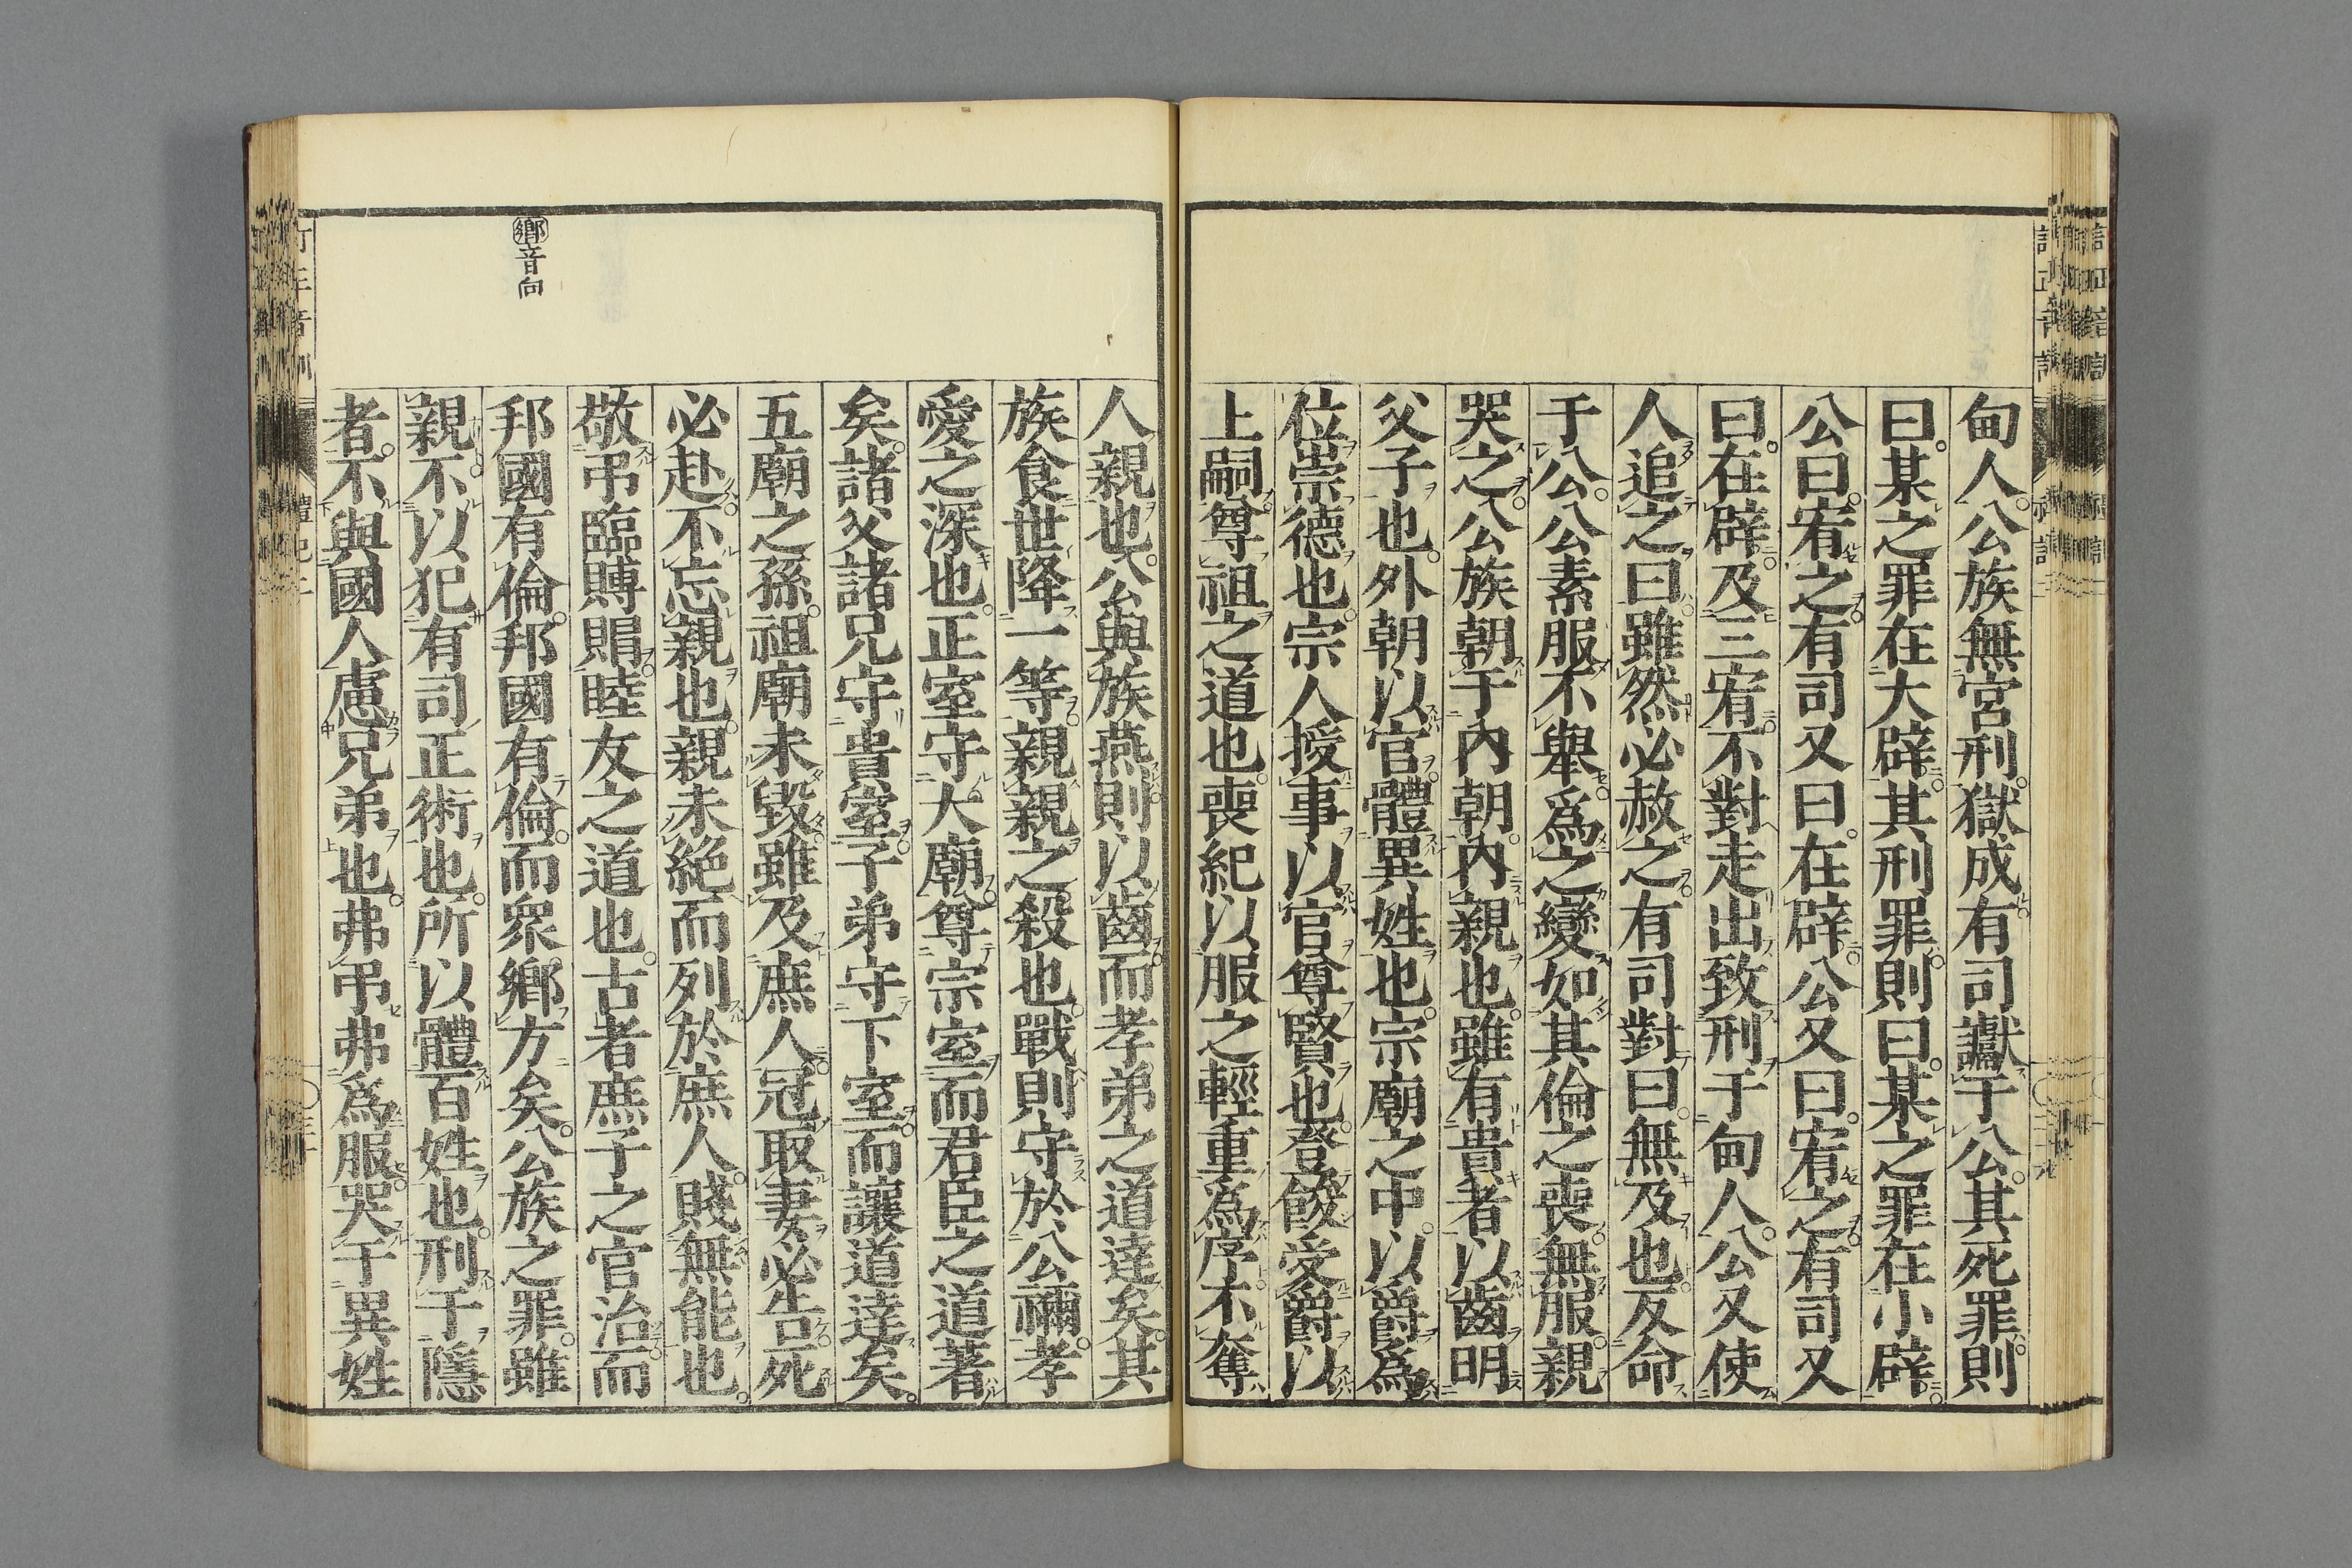 甸人。公族無宮刑。獄成有司讞于公。其死罪則
曰。某之罪在大辟。其刑罪則曰。某之罪在小辟。
公曰。宥之。有司又曰。在辟。公又曰。宥之。有司又
曰。在辟。及三宥。不對走出致刑于甸人。公又使
人追之曰。雖然必赦之。有司對曰。無及也。反命
于公。公素服不舉。爲之變如其倫之喪。無服。親
哭之。公族朝于内朝。内親也。雖有貴者以齒明
父子也。外朝以官。體異姓也。宗廟之中。以爵爲
位崇德也。宗人授事以官尊賢也。登餕受爵以
上嗣。尊祖之道也。喪紀以服之輕重爲序。不奪
人親也。公與族燕則以齒。而孝弟之道達矣。其
族食世降一等。親親之殺也。戰則守於公禰。孝
愛之深也。正室守大廟。尊宗室而君臣之道著
矣。諸父諸兄守貴室。子弟守下室。而讓道達矣。
五廟之孫。祖廟未毀。雖及庶人。冠取妻必告。死
必赴。不忘親也。親未絶而列於庶人。賤無能也。
敬弔臨賻賵。睦友之道也。古者庶子之官治。而
邦國有倫。邦國有倫。而衆鄉方矣。公族之罪。雖
親。不以犯有司正術也。所以體百姓也。刑于隱
者。不與國人慮兄弟也。弗弔弗爲服。哭于異姓
㊀鄉音向